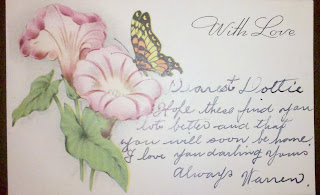 With Love
Dearest Dottie
Hope these find you
lots better and that
you will soon be home.
I love you darling Yours
Always Warren.